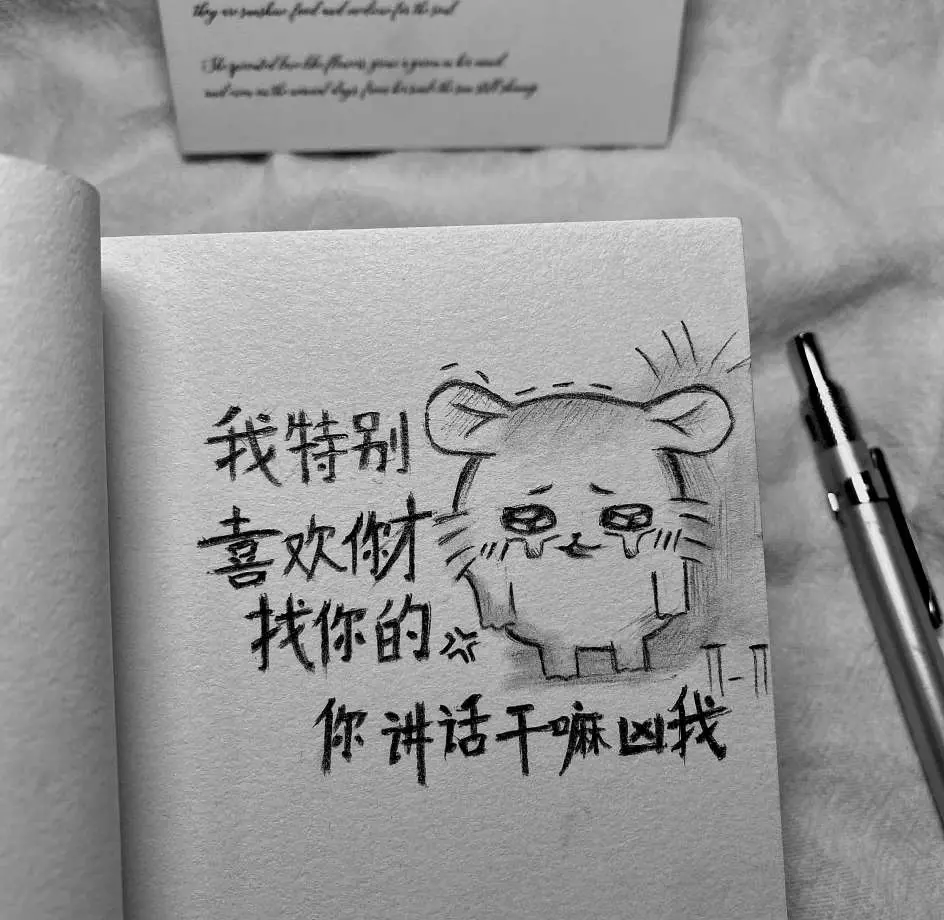 they are sunshine food and medicine for the soul
She sprouted love like flowers, grew a garden in her mind
and even on the darkest days, from her smile the sun still shining
我特别
喜欢你才
找你的
T-T
你讲话干嘛凶我